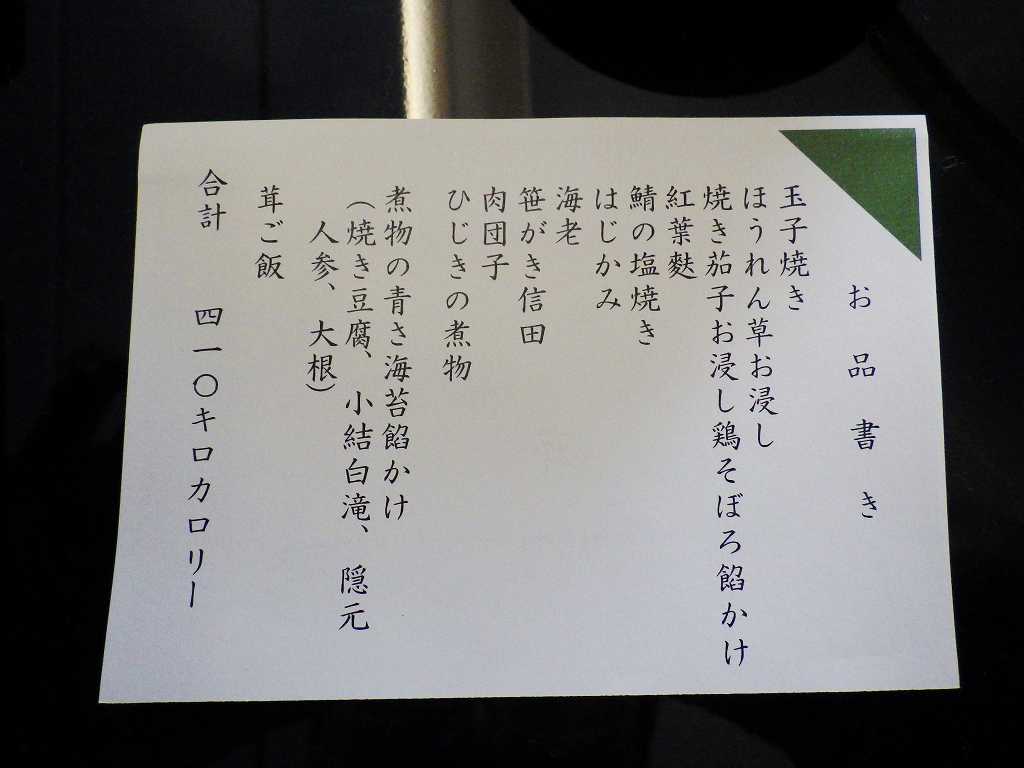 お品書き
玉子焼き
ほうれん草お浸し
焼き茄子お浸し鶏そぼろ餡かけ
紅葉麩
鯖の塩焼き
はじかみ
海老
笹がき信田
肉団子
ひじきの煮物
煮物の青さ海苔餡かけ
(焼き豆腐、小結白滝、隠元
人参、大根)
茸ご飯
合計 四一〇キロカロリー